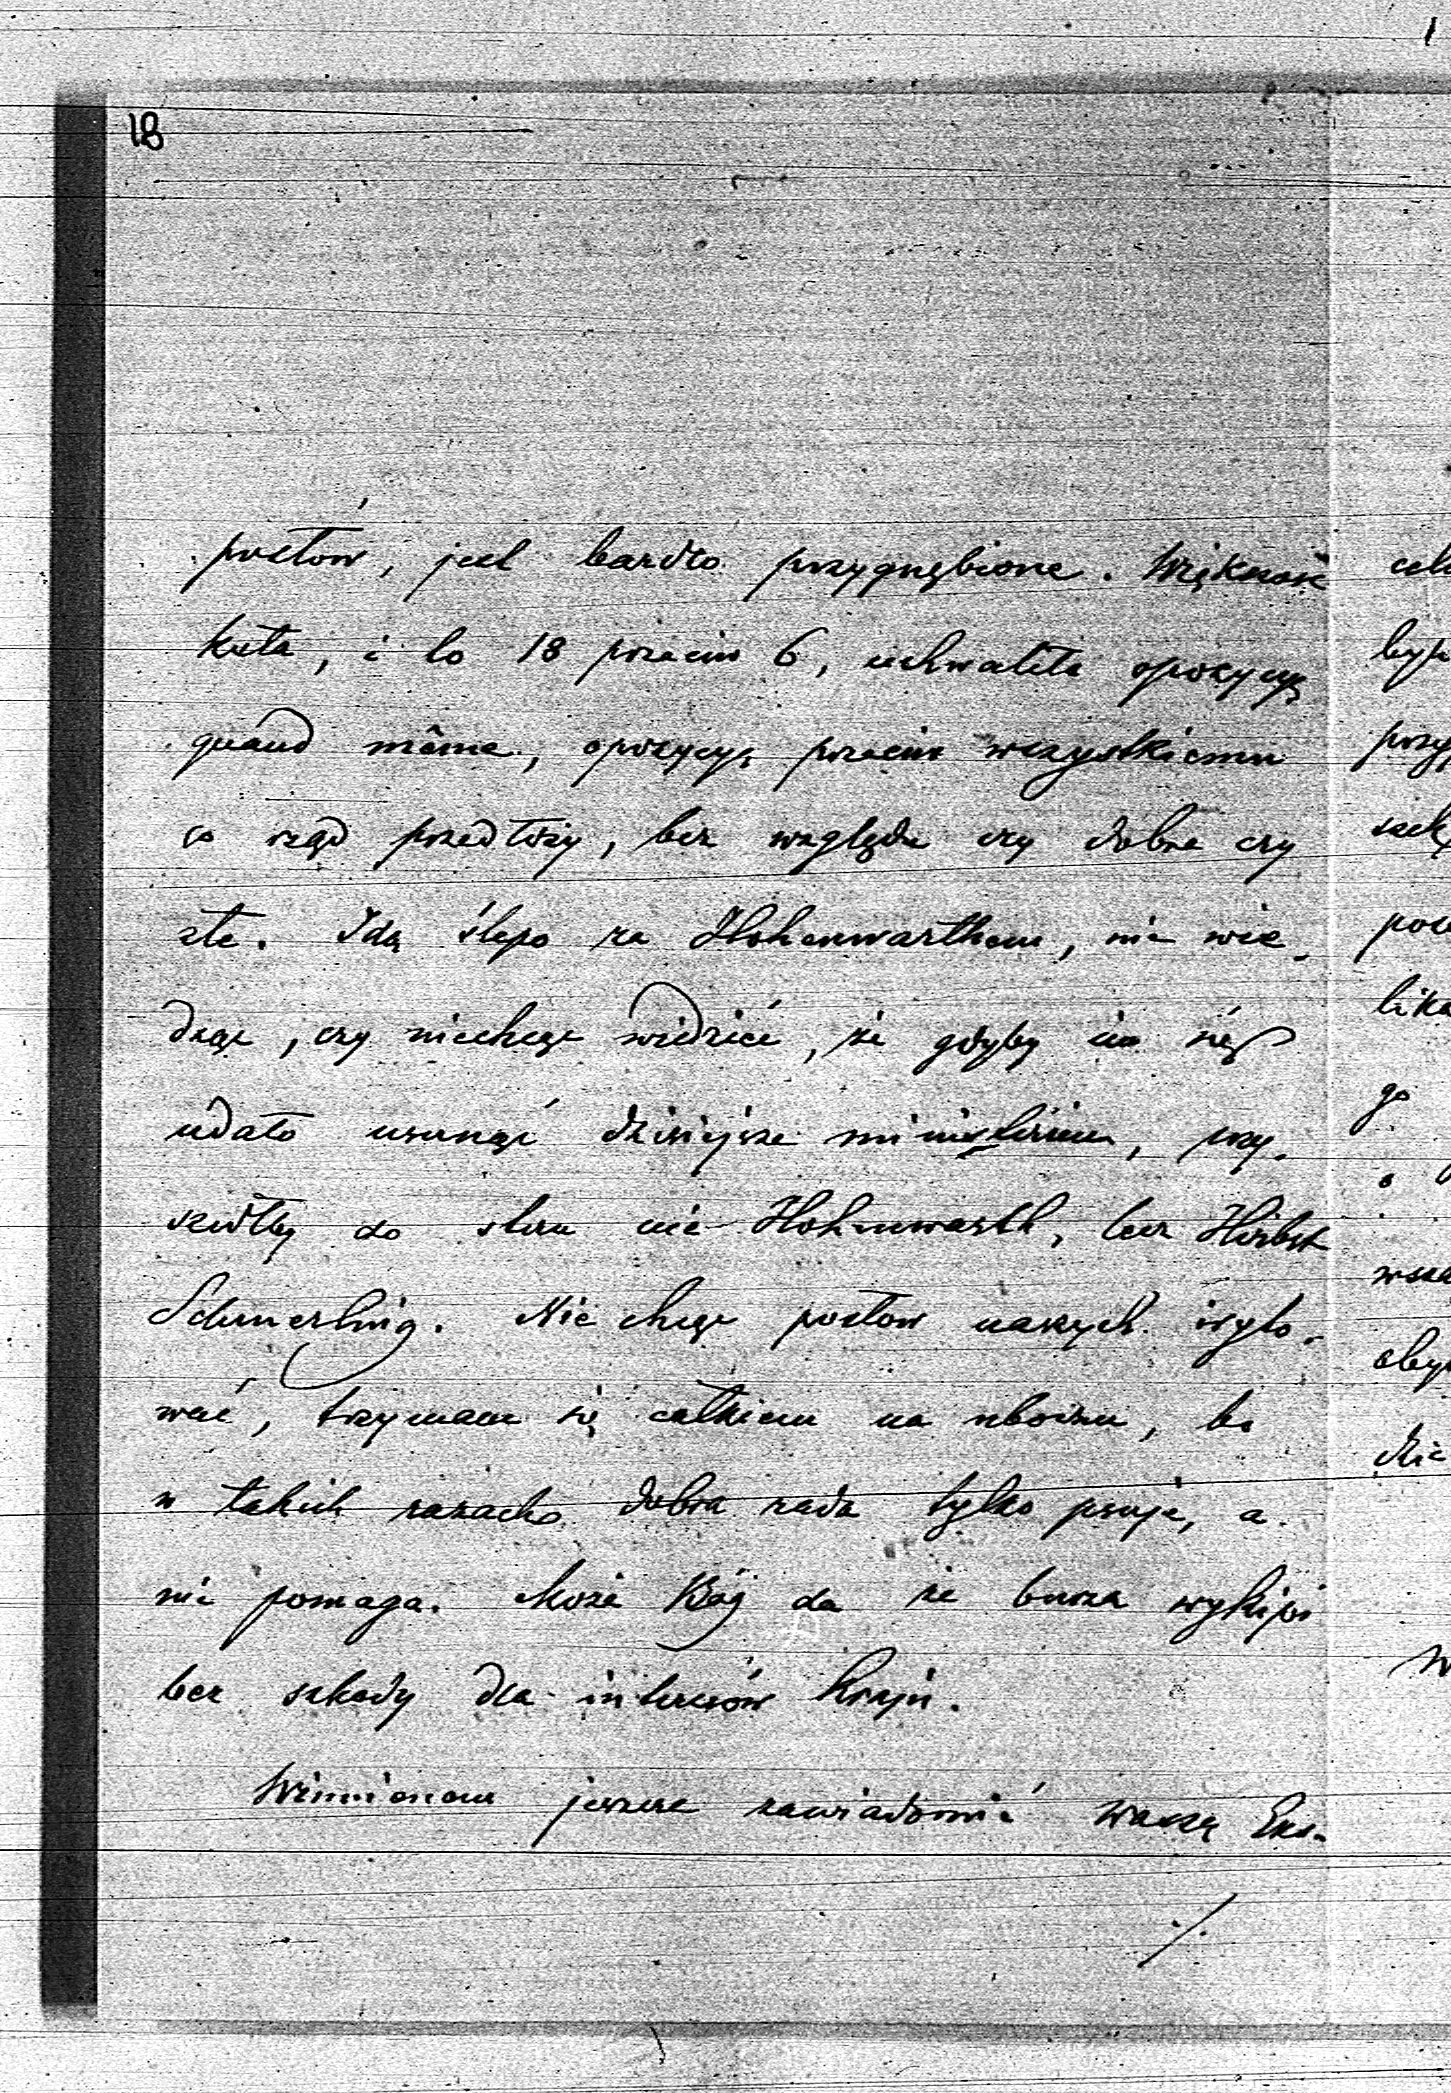 18
posłów, jest bardzo przygnębione. Większość
koła, i to 18 przeciw 6, uchwaliła opozycyę
quand même, opozycyę przeciw wszystkiemu
co rząd przedłoży, bez względu czy dobre czy
złe. Idą ślepo za Hohenwarthem, nie wie-
dząc, czy niechcąc widzieć, że gdyby im się
udało usunąć dzisiejsze ministerium, przy-
szedłby do steru nie Hohenwarth, lecz Herbst
Schmerling. Nie chcąc posłów naszych iryto-
wać, trzymam się całkiem na uboczu, bo
w takich razach dobra rada tylko psuje, a
nie pomaga. Może Bóg da że burza wykipi
bez szkody dla interesów kraju.
Winienem jeszcze zawiadomić Waszą Eks-
./.